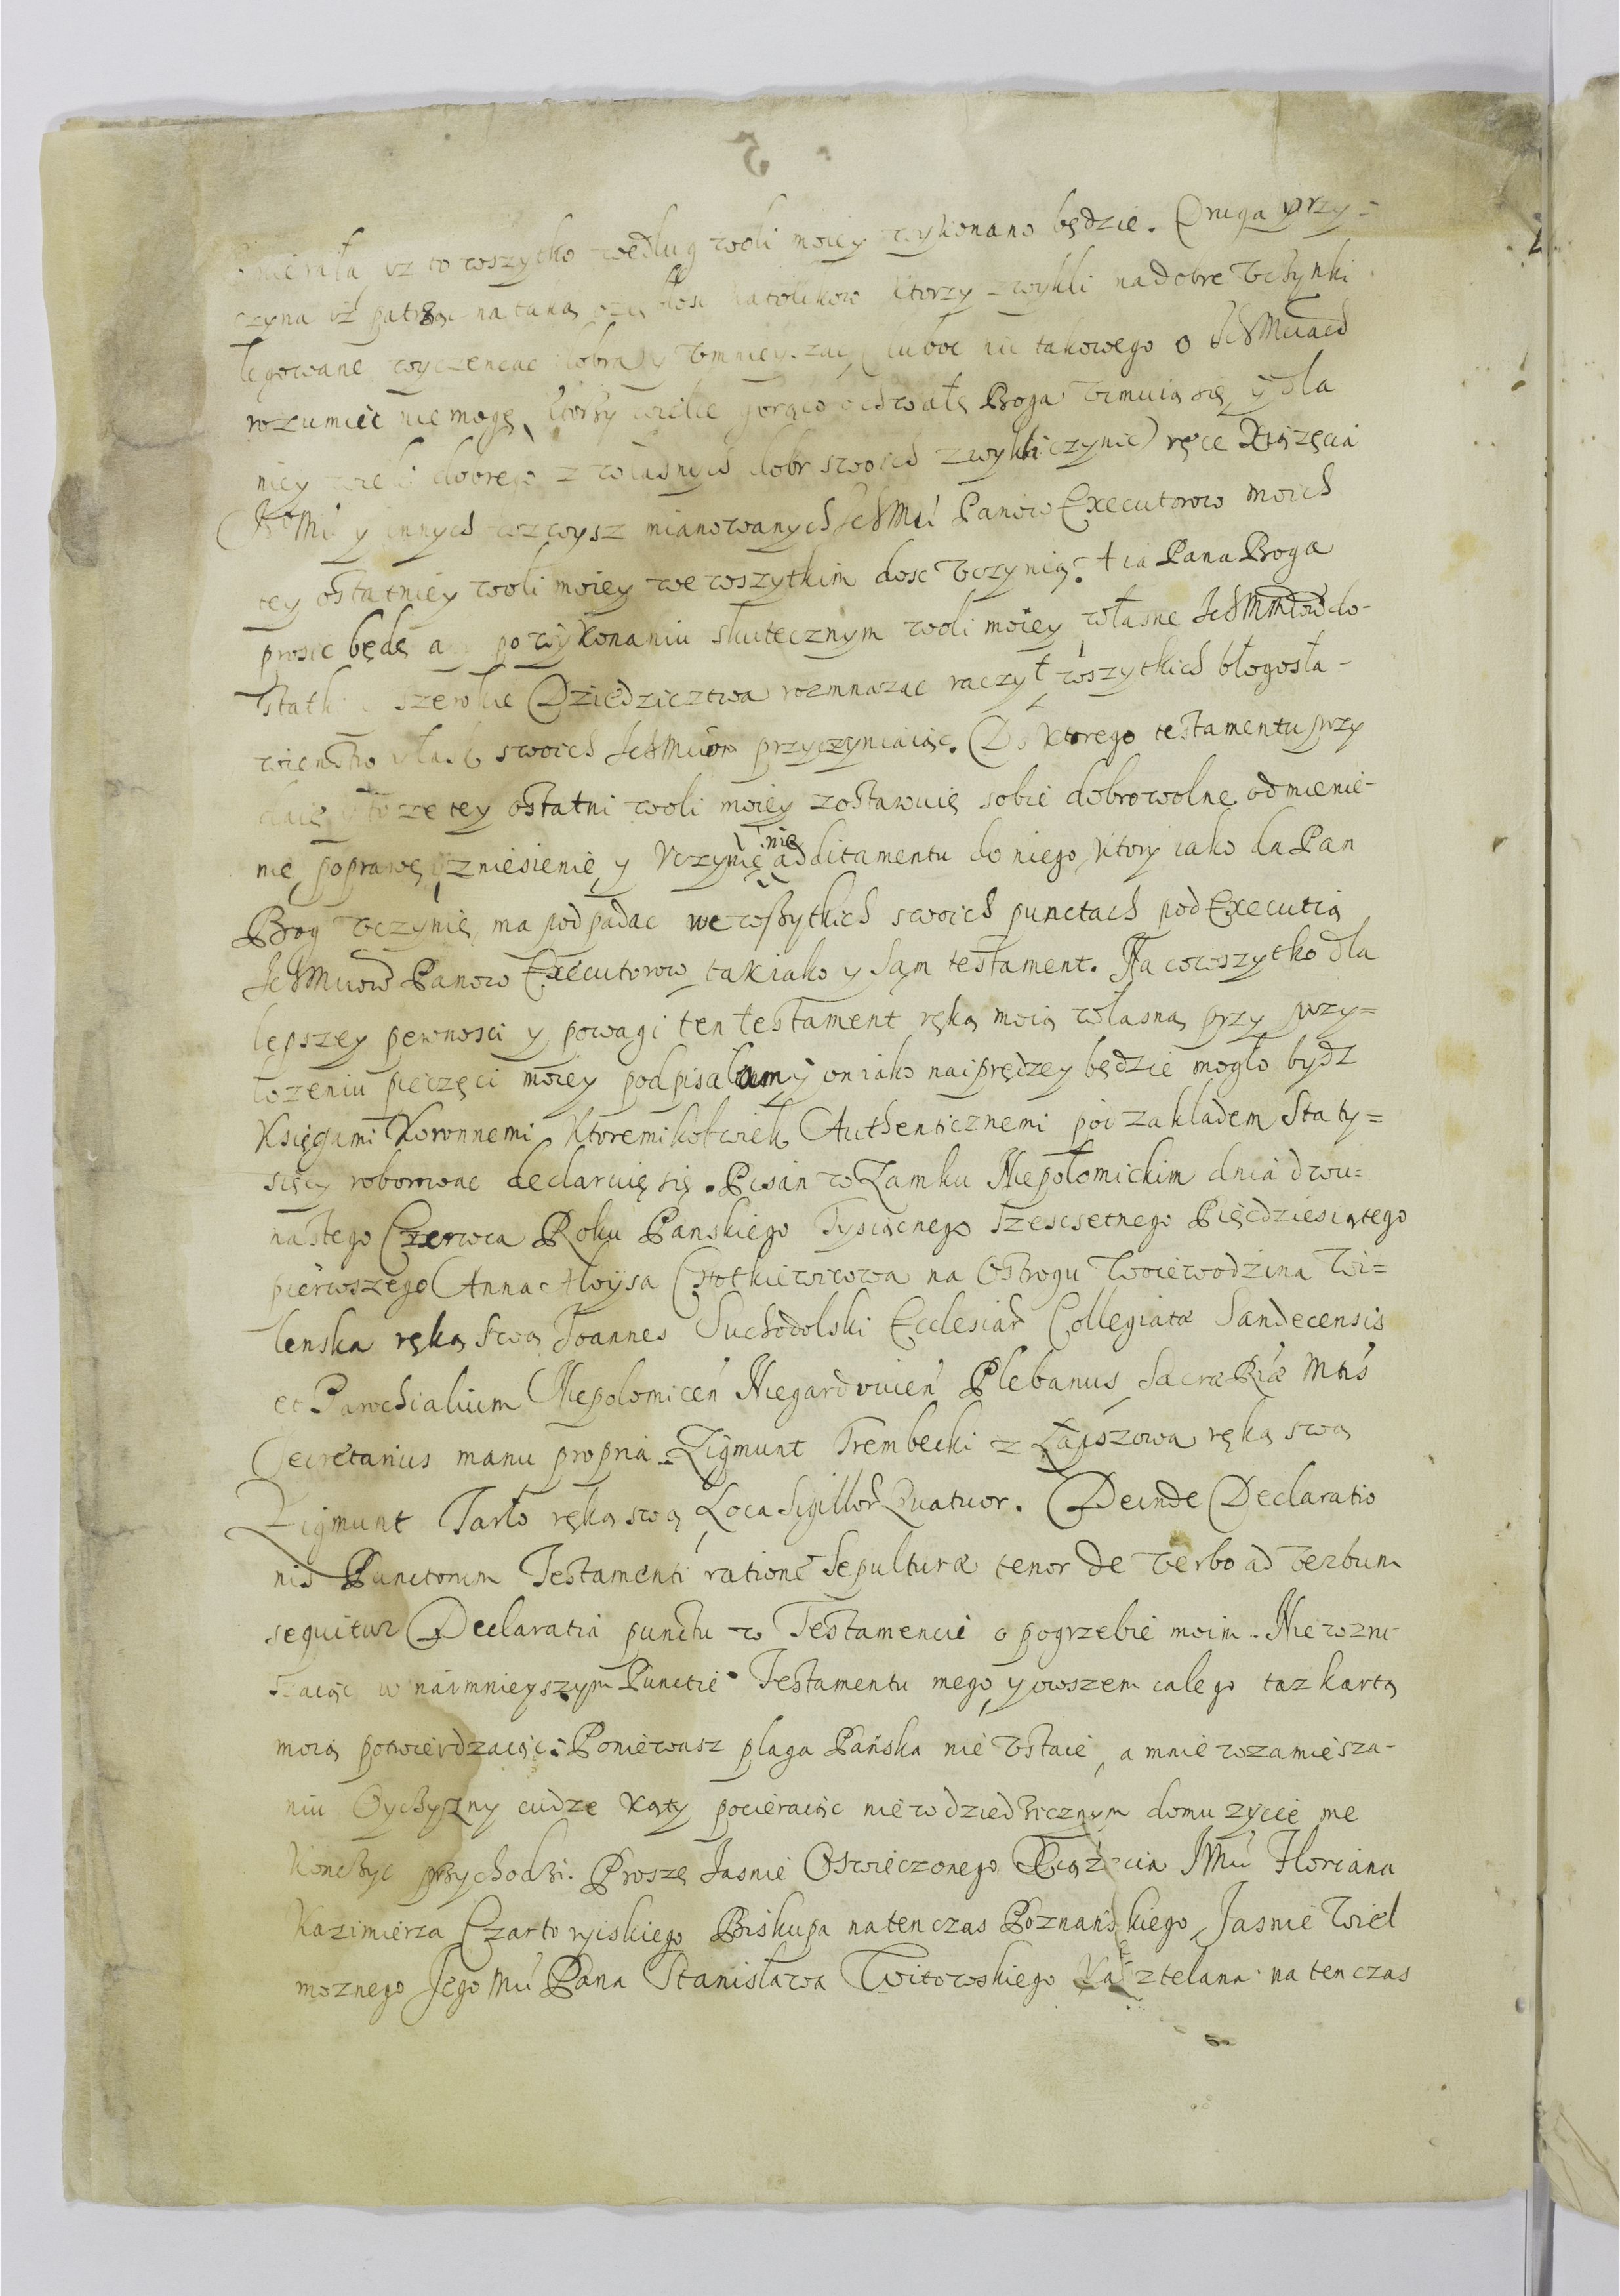 uz to wszytko według woli moiey wykonano będzie. Druga przy-
czyna iż patrząc na taką Katolikow ktorzy zwykli na dobre vczynki
legowane wyczencac dobra y vmnieyszac (luboć nic takowego o IchMciach
rozumiec nie mogę, ktorzy wielce gorąco o chwałę Boga vimuią się y dla
niey wiele dobrego z własnych dobr swoich zwykli czynic) ręce Xiążęcia
IeoMci y innych wzwysz mianowanych IchMci Panow Executorow moich
tey ostatniey woli moiey we wszytkim dosc vczynią. A ia Pana Boga
prosic będę aby po wykonaniu skutecznym woli moiey własne IchMmciow do-
statki szerokie Dziedzictwa rozmnazac raczył wszytkich błogosła-
wienstw łask swoich IchMciom przyczyniaiąc. Do ktorego testamentu przy
daię y to ze tey ostatni woli moiey zostawuię sobie dobrowolne odmienie-
nie, poprawę, zniesienie, y vczynienie additamentu do niego, ktory iako da Pan
Bog vczynię, ma podpadac we wszytkich swoich punctach pod Executią
IchMciow Panow Executorow, tak iako y sam testament. Na co wszytko dla
lepszey pewnosci y powagi ten testament ręką moią własną przy przy=
łozeniu pieczęci moiey podpisałam y on iako naiprędzey będzie mogło bydz
Księgami Koronnemi Ktoremikolwiek Authenticznemi pod zakladem sta ty=
sięcy roborowac declaruię się. Pisan w Zamku Niepołomickim dnia dwu=
nastego Czerwca Roku Panskiego Tysiącnego szescsetnego Pięcdziesiątego
pierwszego Anna Aloysa Chotkiewiczowa na Ostrogu Woiewodzina Wi=
lenska ręką swą Joannes Suchodolski Ecclesiar Collegiatæ Sandecensis
et Parochialium Niepolomicen Niegardovicen Plebanus Sacræ Ræ Mtis
Secretarius manu propria Zigmunt Trembecki z Łapszowa ręką swą
Zigmunt Tarło ręką swą Loca Sigillor Quatuor. Deinde Declaratio
nis Punctorum Testamenti ratione Sepulturæ tenor de verbo ad verbum
sequitur Declaratia punctu w Testamencie o pogrzebie moim. Nie wzru-
szaiąc w naimnieyszym Punctie Testamentu mego, y owszem całego taz kartą
moią potwierdzaiąc: Poniewasz plaga Pańska nie vstaie, a mnie w zamiesza-
niu Oyczyzny cudze Kąty pocieraiąc nie w dziedzicznym domu zycie me
Konczyc przychodzi. Proszę Jasnie Oswieczonego Xiążęcia JMci Floriana
Kazimierza Czartoryiskiego Biskupa na ten czas Poznanskiego, Jasnie Wiel
moznego Jego Mci Pana Stanisława Witowskiego Kasztelana na ten czas